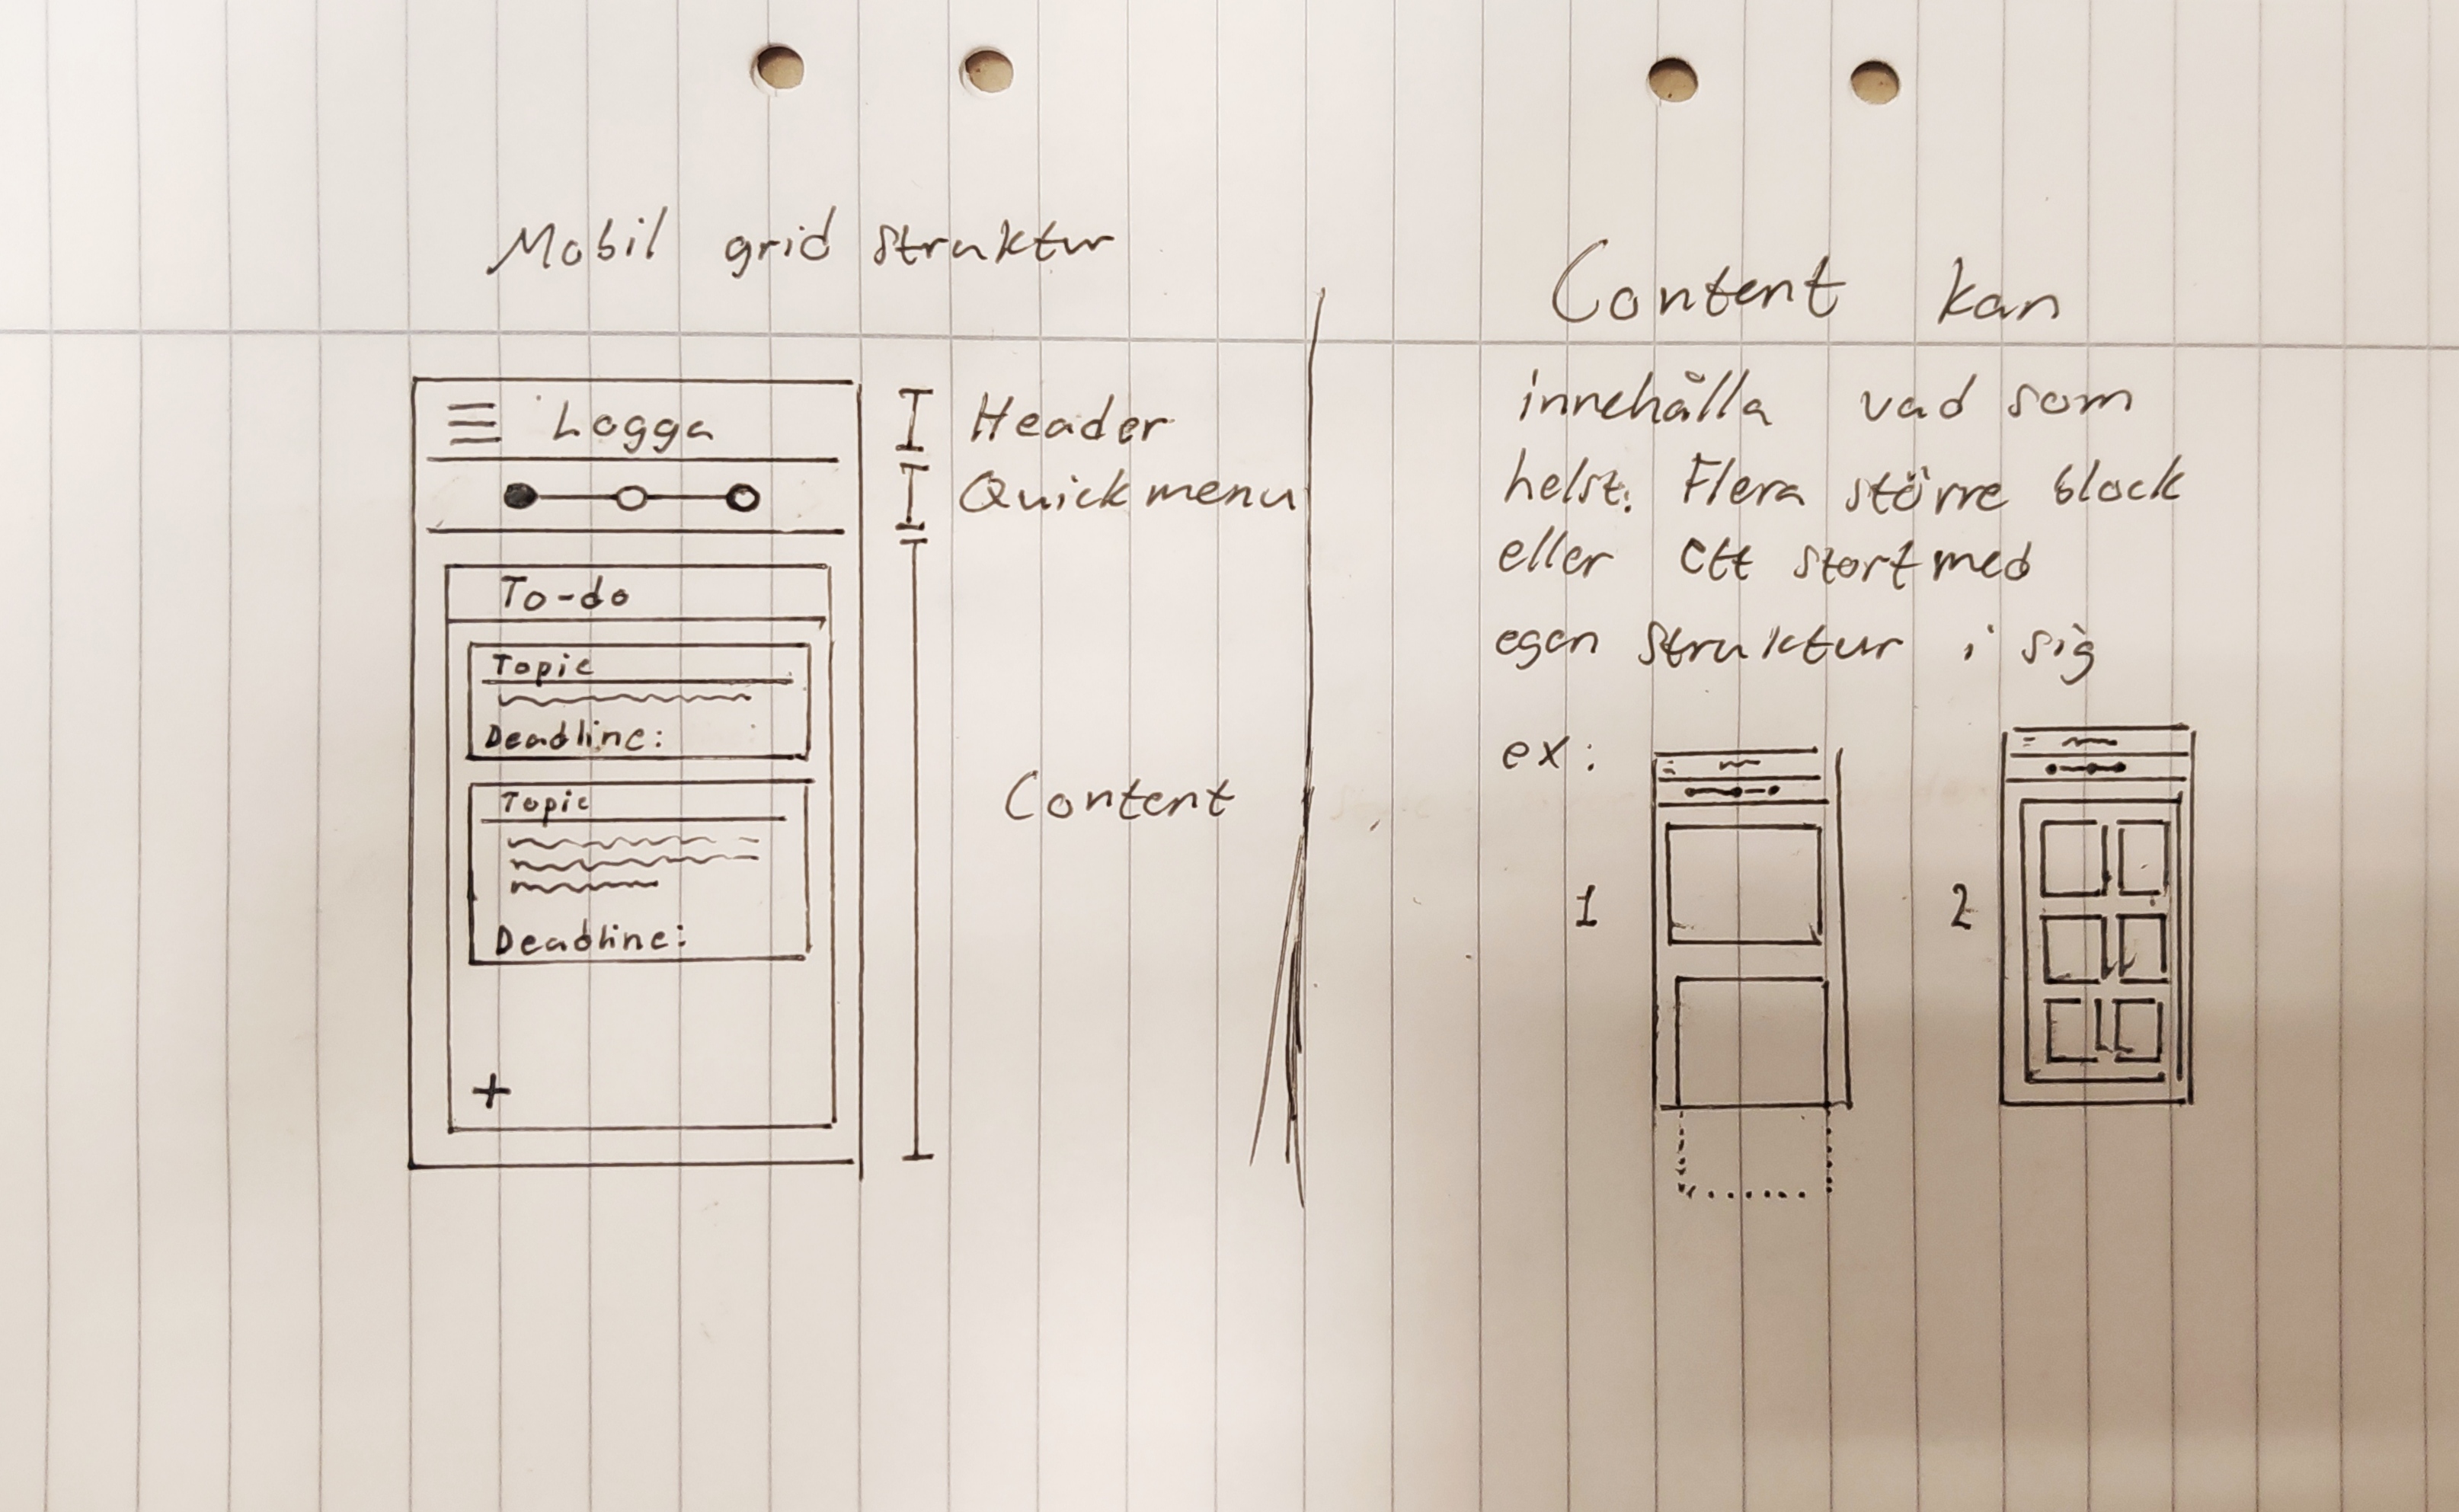 Mobil grid struktur
Logga
Header
Quickmenu
To-do
Topic
Deadline:
Topic
Deadline:
+
Content
Content kan
innehålla vad som
helst. Flera större block
eller ett stort med
egen struktur i sig
ex:
1
2